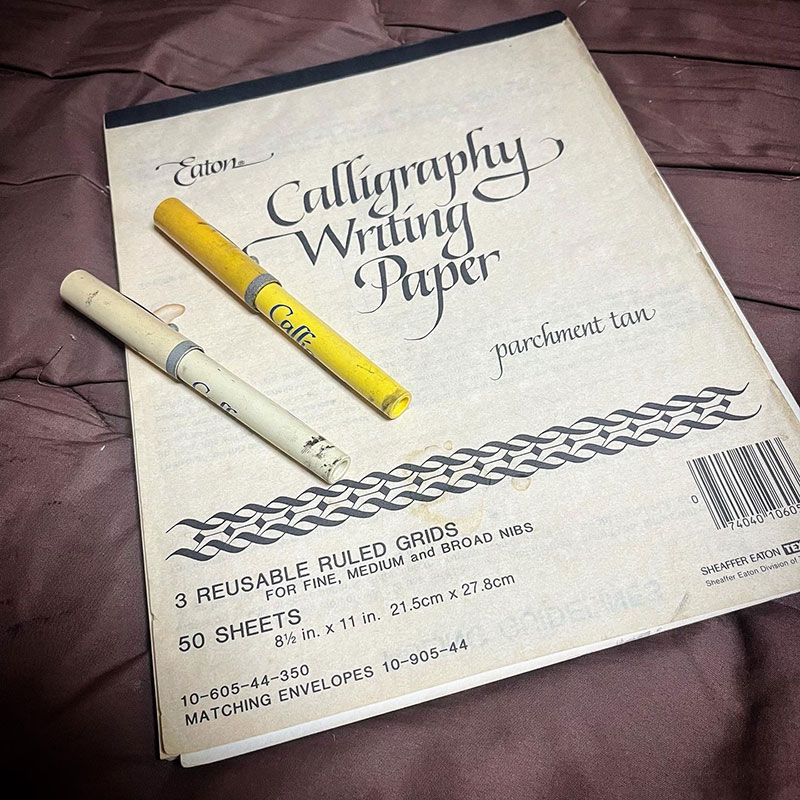 Eaton®
Calligraphy
Writing
Paper
parchment tan
Calli
3 REUSABLE RULED GRIDS
FOR FINE, MEDIUM and BROAD NIBS
50 SHEETS
8½ in. x 11 in. 21.5cm x 27.8cm
10-605-44-350
MATCHING ENVELOPES 10-905-44
0 74040 1060
SHEAFFER EATON
Sheaffer Eaton Division of